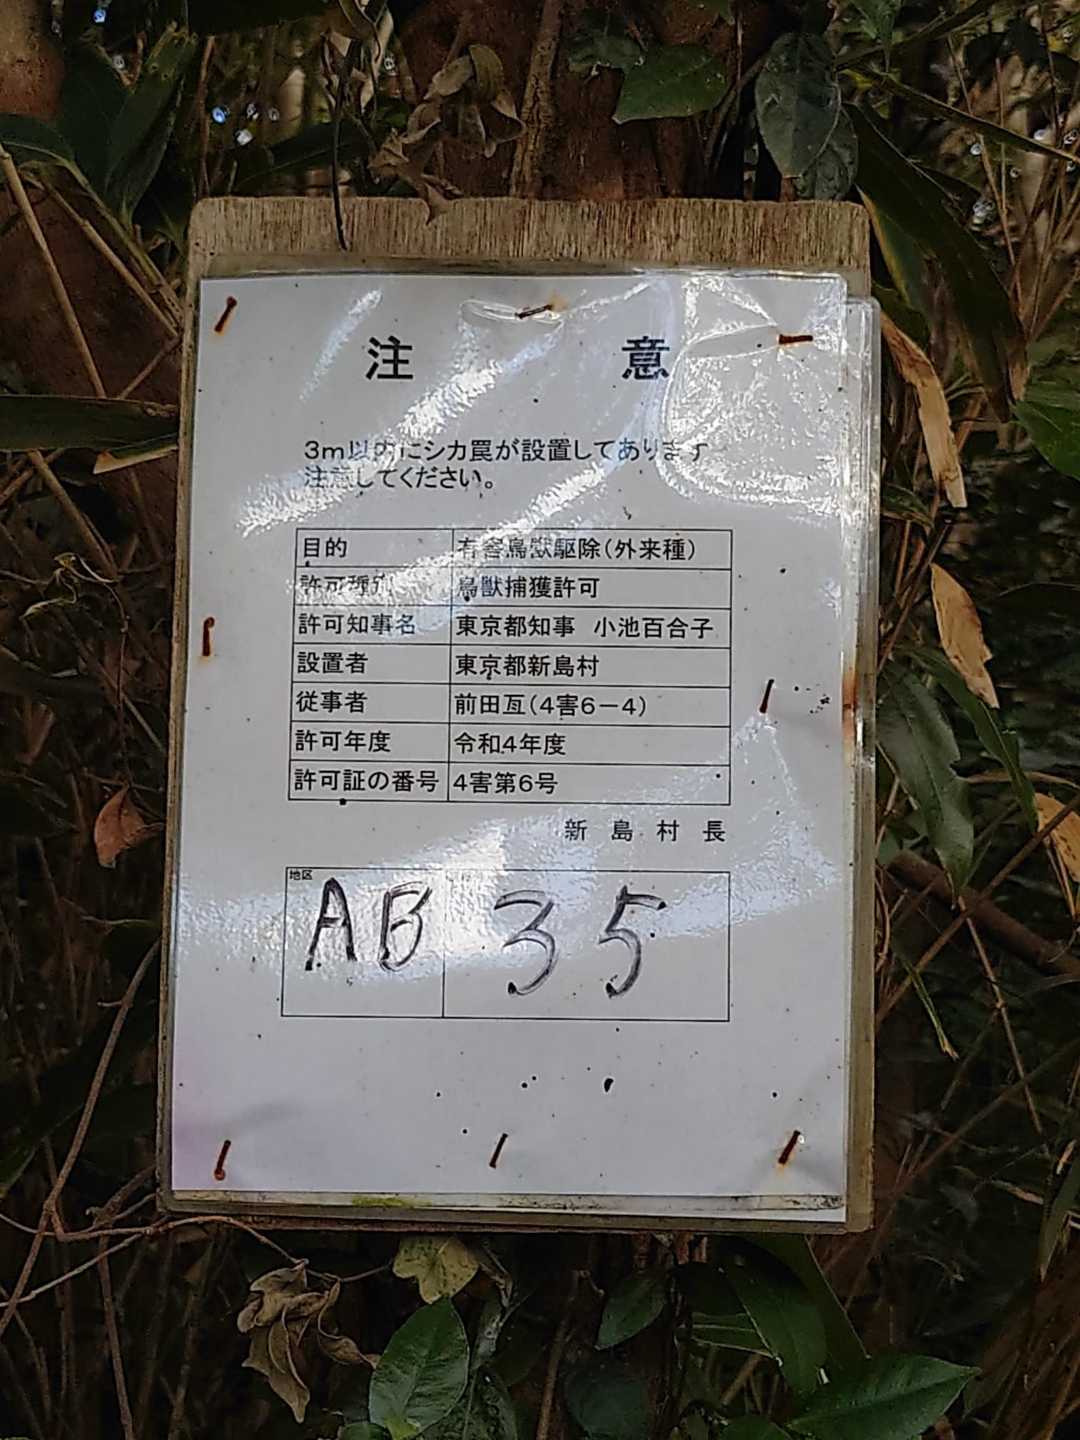 注 意
3m以内にシカ罠が設置してあります
注意してください。
目的 有害鳥獣駆除(外来種)
許可種別 鳥獣捕獲許可
許可知事名 東京都知事 小池百合子
設置者 東京都新島村
従事者 前田亙(4害6-4)
許可年度 令和4年度
許可証の番号 4害第6号
新島村長
地区
AB 35